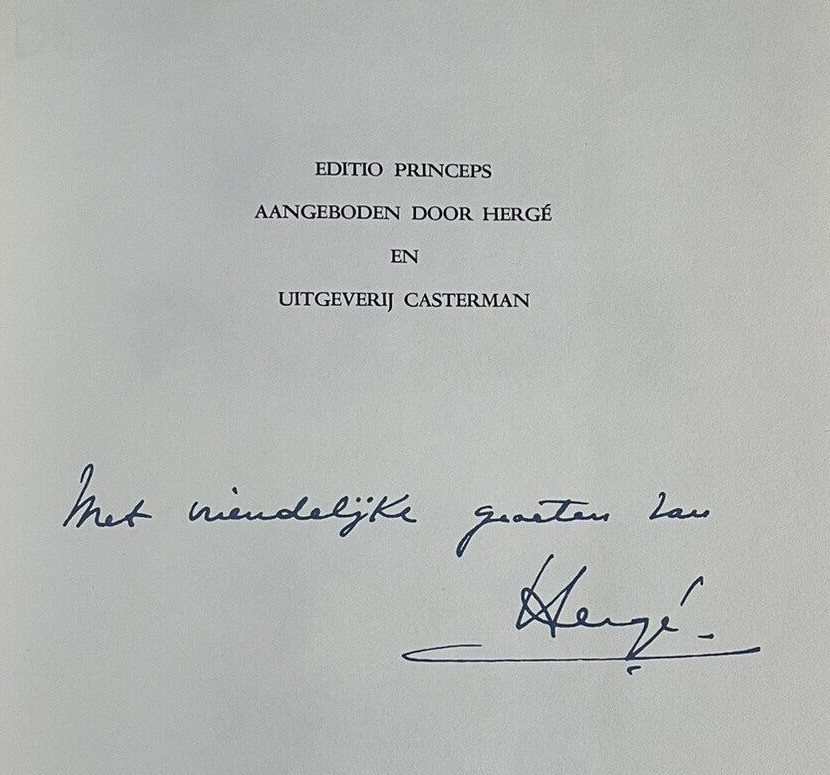 EDITIO PRINCEPS
AANGEBODEN DOOR HERGÉ
EN
UITGEVERIJ CASTERMAN
Met vriendelijke groeten van
Hergé.